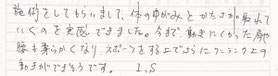 施術をしてもらいまして、体のゆがみとかたさが取れて
いくのを実感できました。今まで動きにくかった肩や
腰も柔らかくなり、スポーツをする上でさらにワンランク上の
動きができそうです。 I.S